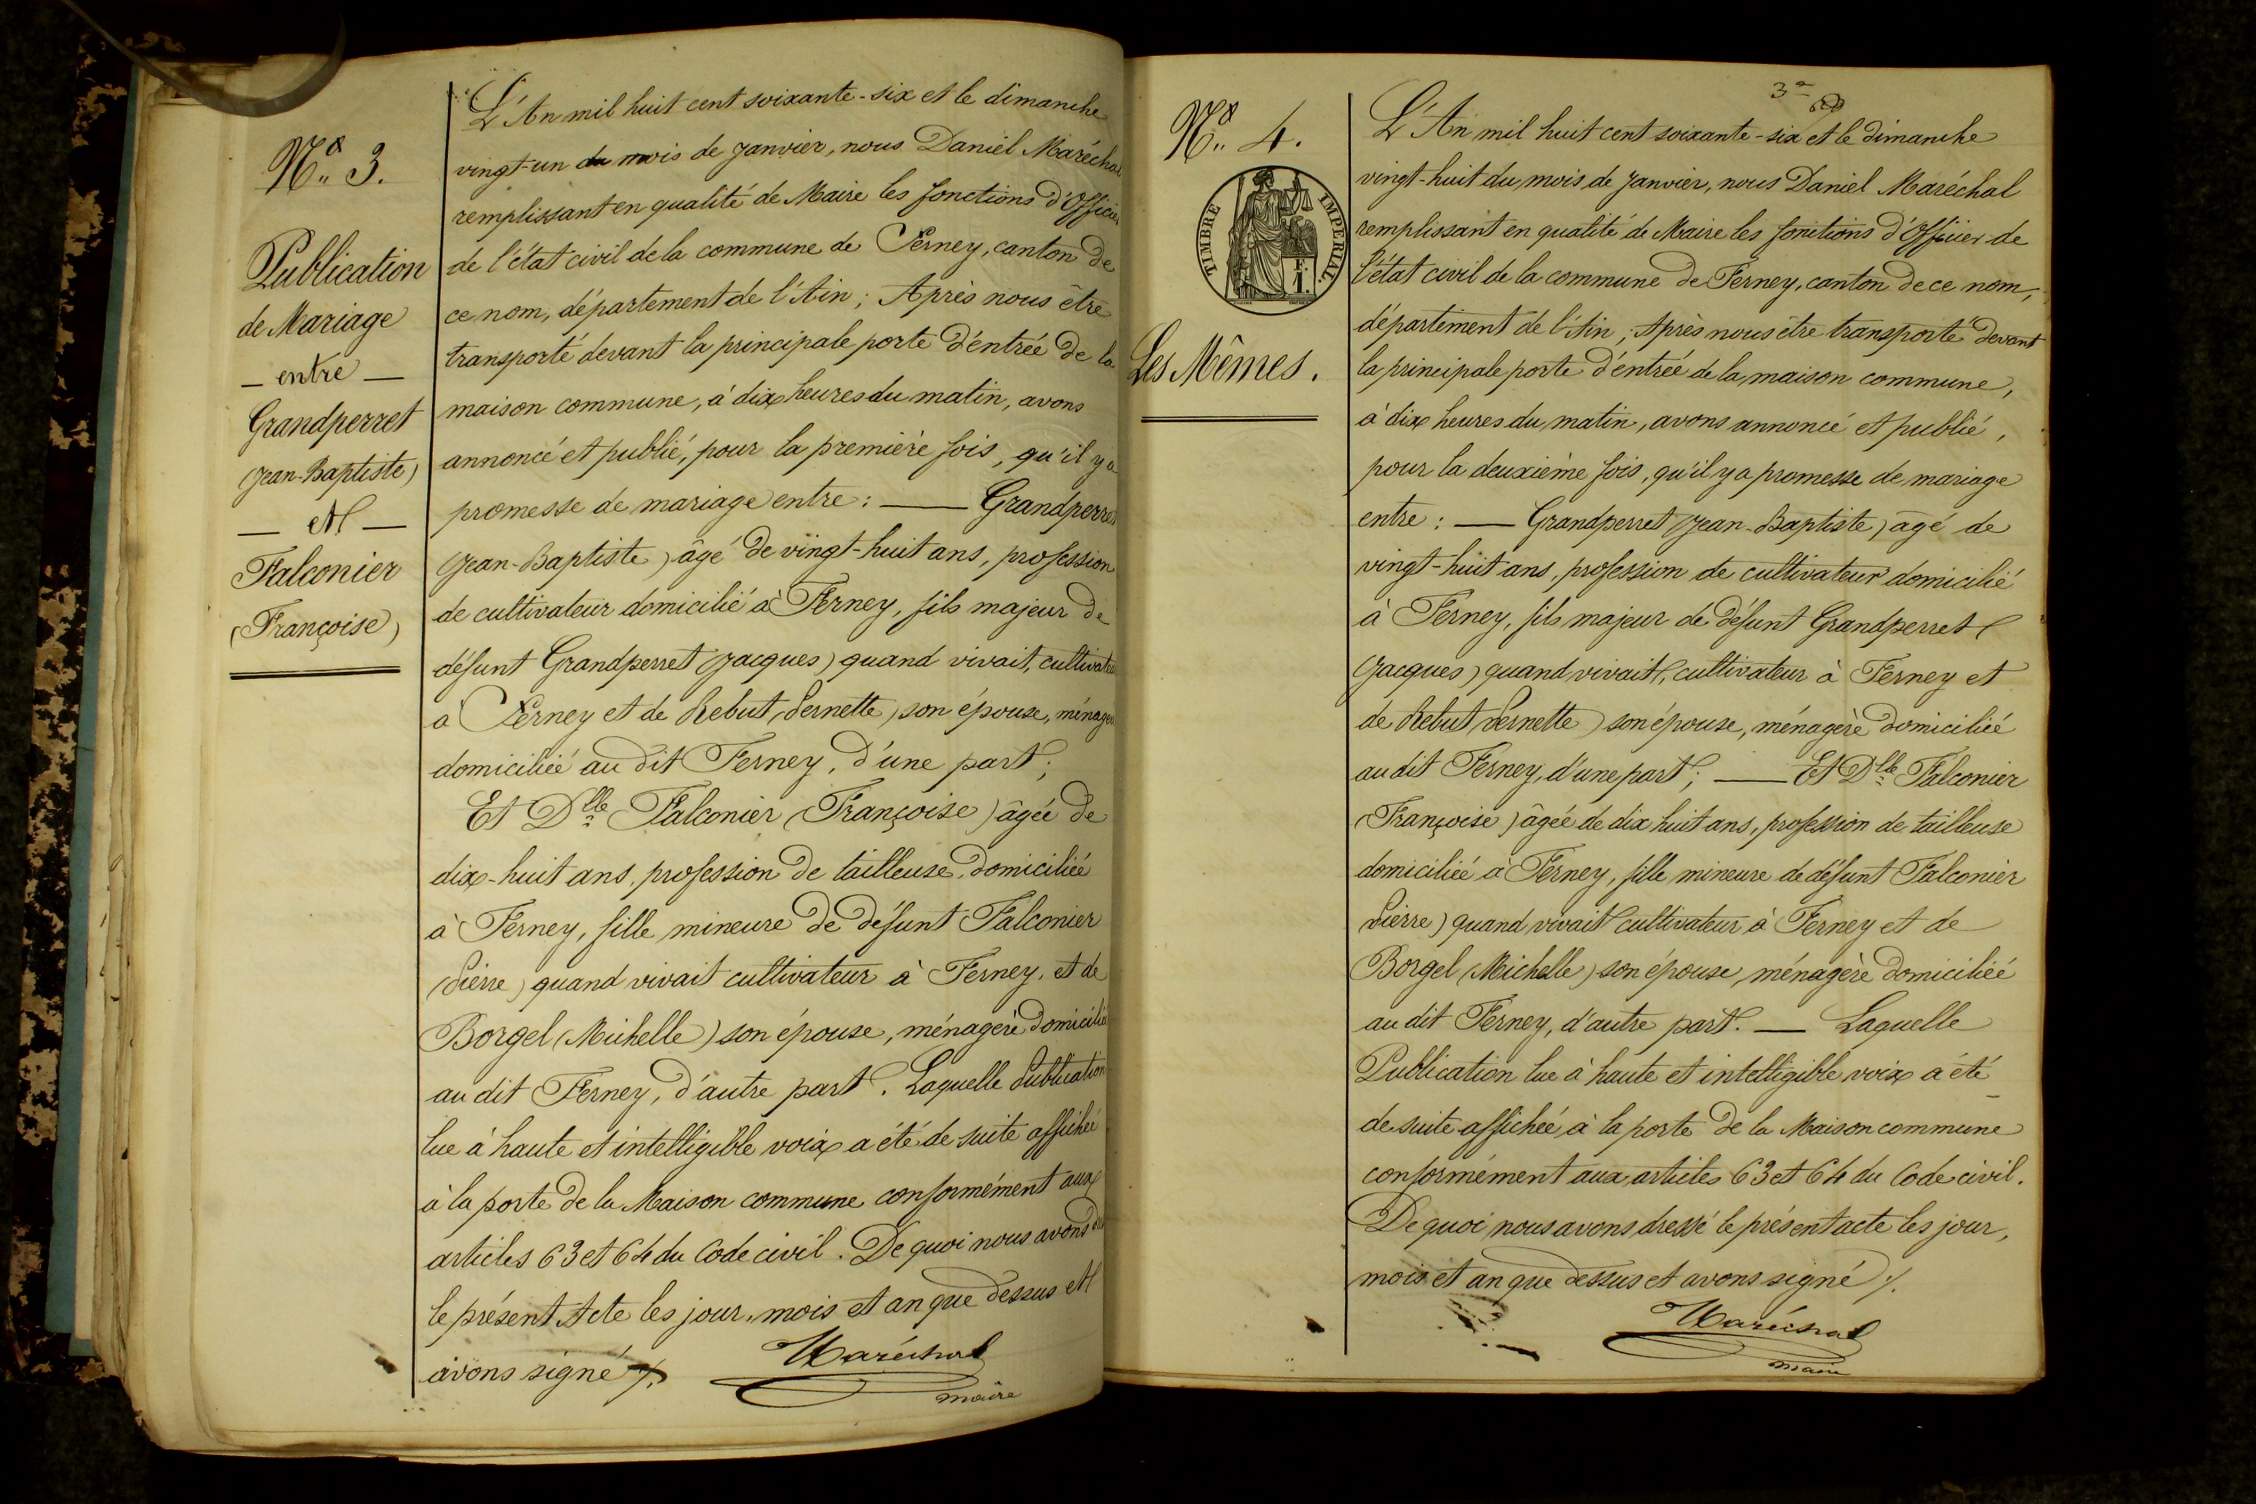 Nº 3.
Publication
de Mariage
— entre —
Grandperret
(Jean-Baptiste)
— et —
Falconier
(Françoise)
L'An mil huit cent soixante-six et le dimanche
vingt-un du mois de Janvier, nous Daniel Maréchal
remplissant en qualité de Maire les fonctions d'Officier
de l'état civil de la commune de Ferney, canton de
ce nom, département de l'Ain; Après nous être
transporté devant la principale porte d'entrée de la
maison commune, à dix heures du matin, avons
annoncé et publié, pour la première fois, qu'il y a
promesse de mariage entre: — Grandperret
(Jean-Baptiste) âgé de vingt-huit ans, profession
de cultivateur domicilié à Ferney, fils majeur de
défunt Grandperret (Jacques) quand vivait, cultivateur
à Ferney et de Rebut (Pernette) son épouse, ménagère
domiciliée au dit Ferney, d'une part;
Et Dlle Falconier (Françoise) âgée de
dix-huit ans, profession de tailleuse domiciliée
à Ferney, fille mineure de défunt Falconier
(Pierre) quand vivait cultivateur à Ferney, et de
Borgel (Michelle) son épouse, ménagère domiciliée
au dit Ferney, d'autre part. Laquelle Publication
lue à haute et intelligible voix a été de suite affichée
à la porte de la Maison commune conformément aux
articles 63 et 64 du Code civil. De quoi nous avons
le présent Acte les jour, mois et an que dessus et
avons signé ⁒.
Maréchal
maire
3e
Nº 4.
TIMBRE IMPÉRIAL.
Les Mêmes.
L'An mil huit cent soixante-six et le dimanche
vingt-huit du mois de Janvier, nous Daniel Maréchal
remplissant en qualité de Maire les fonctions d'Officier de
l'état civil de la commune de Ferney, canton de ce nom,
département de l'Ain; Après nous être transporté devant
la principale porte d'entrée de la maison commune,
à dix heures du matin, avons annoncé et publié,
pour la deuxième fois, qu'il y a promesse de mariage
entre: — Grandperret (Jean-Baptiste) âgé de
vingt-huit ans, profession de cultivateur domicilié
à Ferney, fils majeur de défunt Grandperret
(Jacques) quand vivait, cultivateur à Ferney et
de Rebut (Pernette) son épouse, ménagère domiciliée
au dit Ferney, d'une part; — Et Dlle Falconier
(Françoise) âgée de dix huit ans, profession de tailleuse
domiciliée à Ferney, fille mineure de défunt Falconier
(Pierre) quand vivait cultivateur à Ferney et de
Borgel (Michelle) son épouse, ménagère domiciliée
au dit Ferney, d'autre part. — Laquelle
Publication lue à haute et intelligible voix a été
de suite affichée à la porte de la Maison commune
conformément aux articles 63 et 64 du Code civil.
De quoi nous avons dressé le présent acte les jour,
mois et an que dessus et avons signé ⁒.
Maréchal
maire